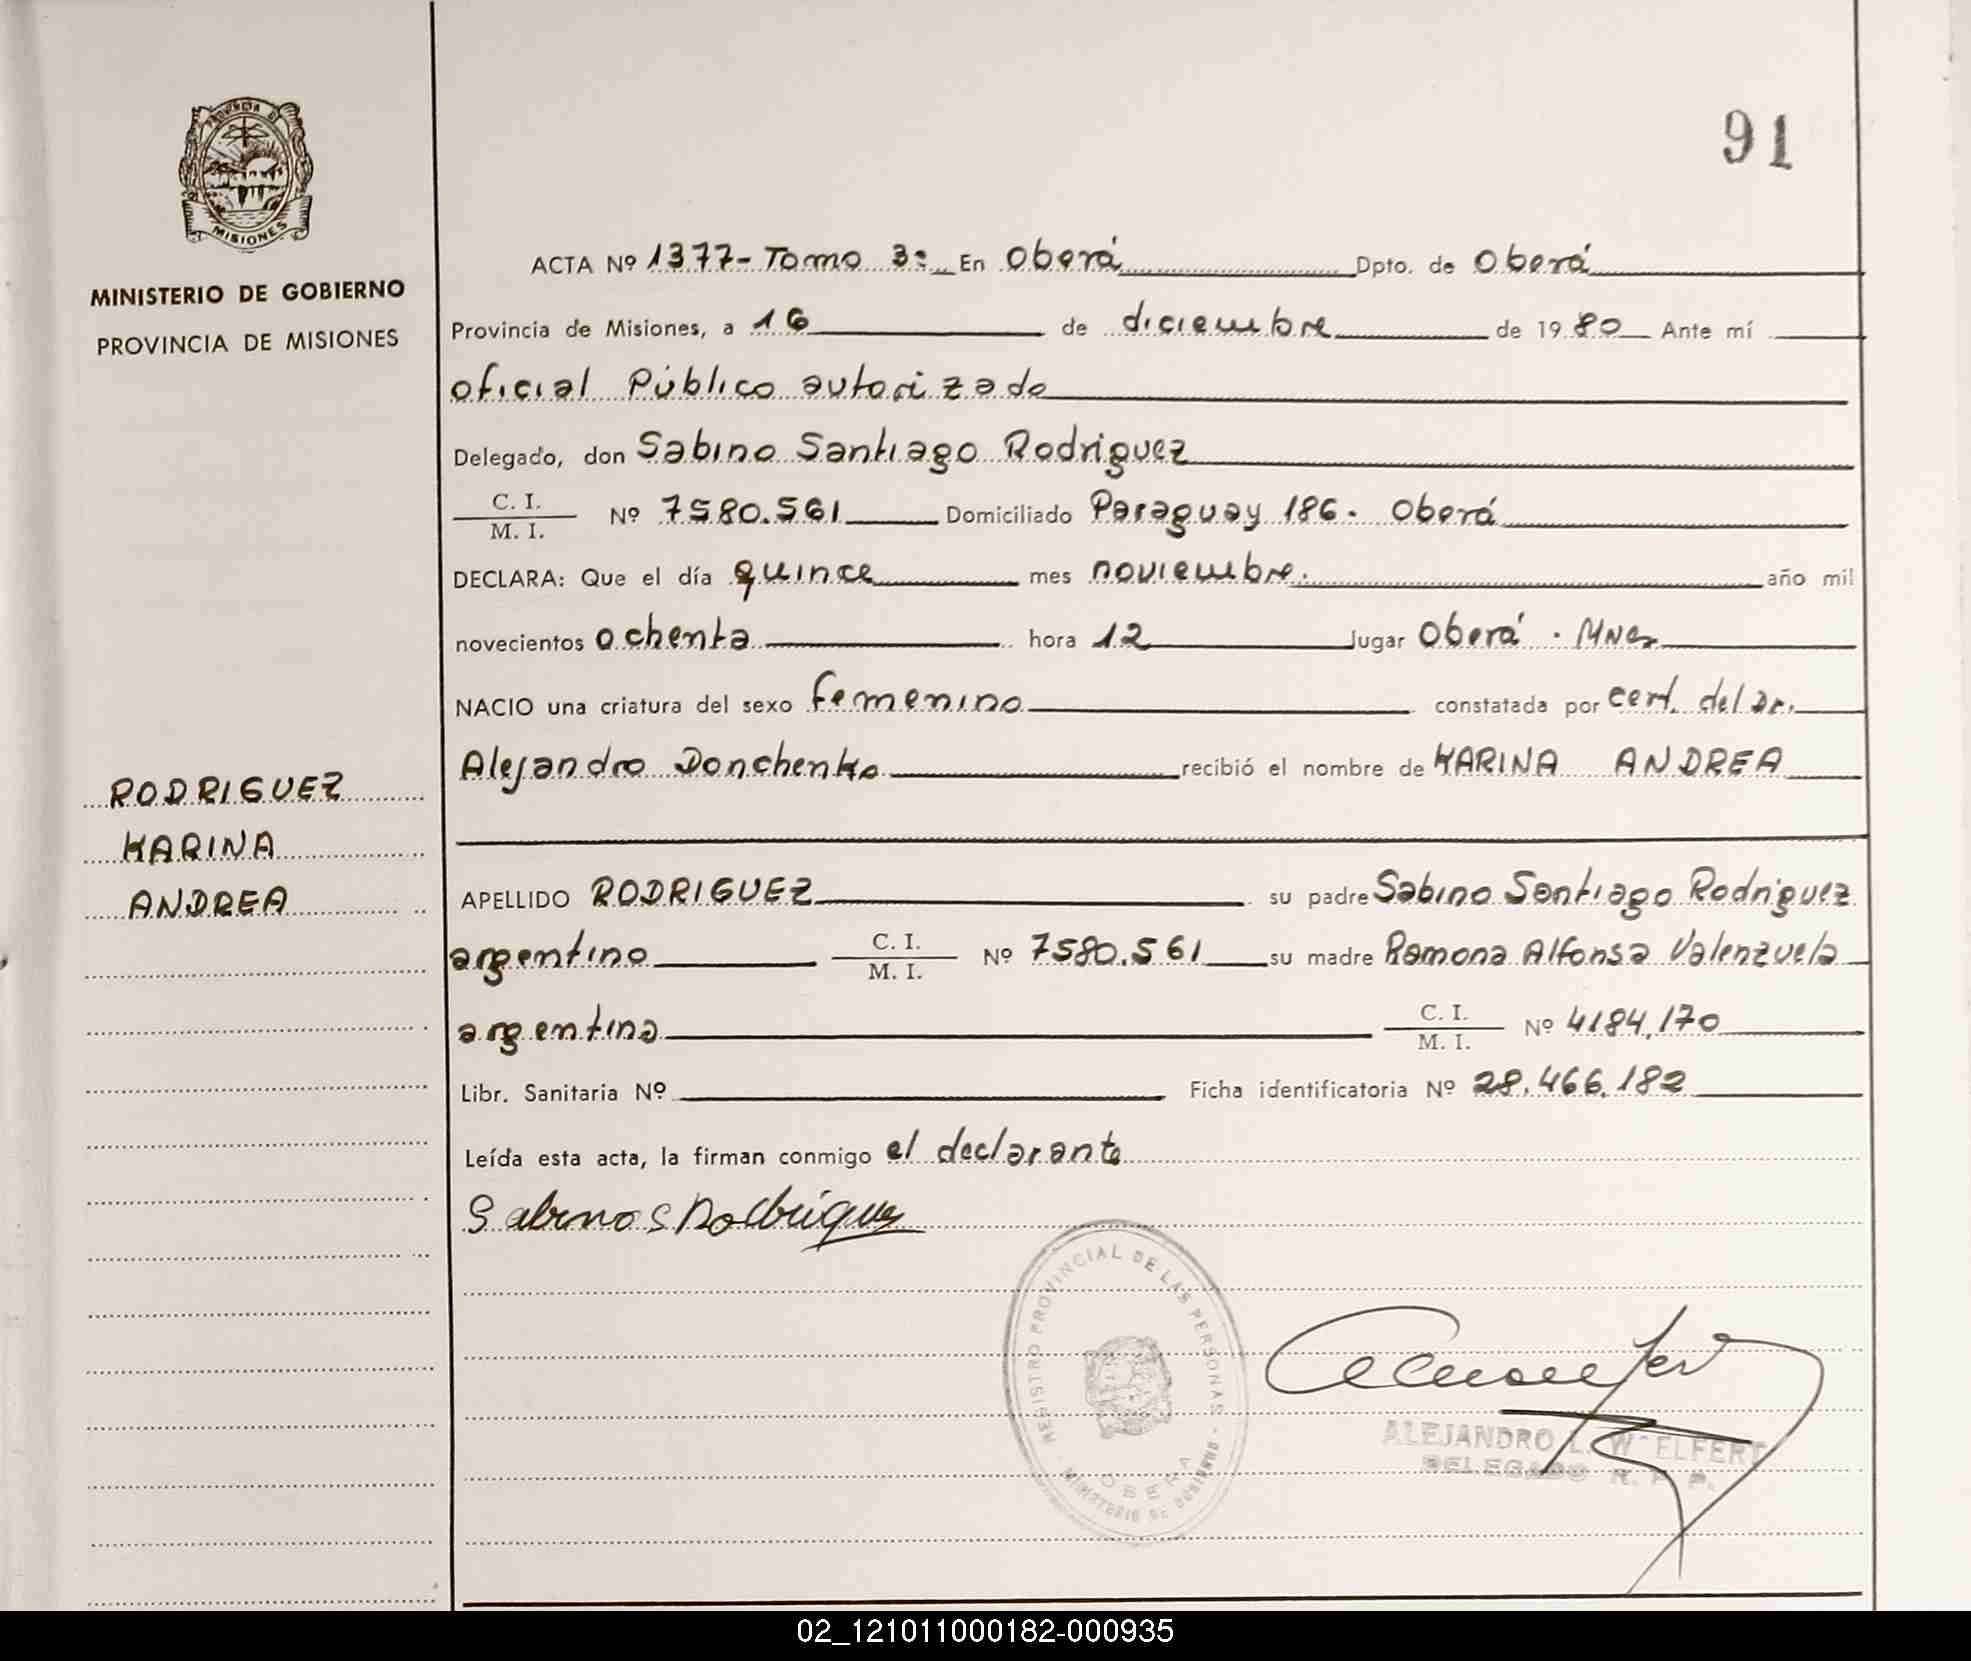 91
PROVINCIA DE
MISIONES
MINISTERIO DE GOBIERNO
PROVINCIA DE MISIONES
RODRIGUEZ
KARINA
ANDREA
ACTA Nº 1377-Tomo 3º En Oberá Dpto. de Oberá
Provincia de Misiones, a 16 de diciembre de 1980 Ante mí
oficial Público autorizado
Delegado, don Sabino Santiago Rodriguez
C. I.
M. I. Nº 7580.561 Domiciliado Paraguay 186. Oberá
DECLARA: Que el día quince mes noviembre. año mil
novecientos ochenta hora 12 lugar Oberá . Mnes
NACIO una criatura del sexo femenino constatada por cert. del Dr.
Alejandro Donchenko recibió el nombre de KARINA ANDREA
APELLIDO RODRIGUEZ su padre Sabino Santiago Rodriguez
argentino C. I. M. I. Nº 7580.561 su madre Ramona Alfonsa Valenzuela
argentina C. I. M. I. Nº 4184.170
Libr. Sanitaria Nº Ficha identificatoria Nº 28.466.182
Leída esta acta, la firman conmigo el declarante
Sabino S Rodriguez
REGISTRO PROVINCIAL DE LAS PERSONAS
MINISTERIO DE GOBIERNO
OBERA
ALEJANDRO L. W ELFERT
DELEGADO R. P. P.
02_121011000182-000935